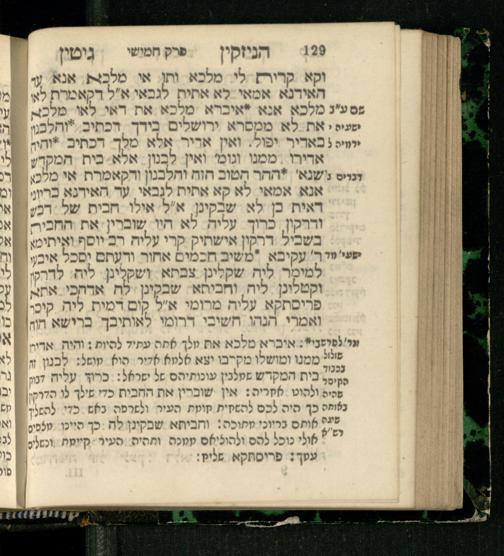 129 הניזקין פרק חמישי גיטין
וקא קרית לי מלכא ותו אי מלכא אנא עד
האידנא אמאי לא אתית לגבאי א"ל דקאמרת לאו
מלכא אנא *איברא מלכא את דאי לאו מלכא
את לא ממסרא ירושלים בידך דכתיב *והלבנון
באדיר יפול. ואין אדיר אלא מלך דכתיב *והיה
אדירו ממנו וגומ' ואין לבנון אלא בית המקדש
שנא' *ההר הטוב הזה והלבנון ודקאמרת אי מלכא
אנא אמאי לא קא אתית לגבאי עד האידנא בריוני
דאית בן לא שבקינן א"ל אילו חבית של דבש
ודרקון כרוך עליה לא היו שוברין את החבית
בשביל דרקון אישתיק קרי עליה רב יוסף ואיתימא
ר' עקיבא *משיב חכמים אחור ודעתם יסכל איבעי
למימר ליה שקלינן צבתא ושקלינן ליה לדרקון
וקטלינן ליה וחביתא שבקינן לה אדהכי אתא
פריסתקא עליה מרומי א"ל קום דמית ליה קיסר
ואמרי הנהו חשיבי דרומי לאותיבך ברישא הוה
שם ע"ב
ישעיה י
ירמיה ל
דברים ג
ישעי' מד
איברא מלכא את מלך אתה עתיד להיות: והיה אדירו
ממנו ומושלו מקרבו יצא אלמא אדיר הוא מושל: לבנון זה
בית המקדש שמלבין עונותיהם של ישראל: כרוך עליה דבוק
אין שוברין את החבית כדי שילך לו הדרקון
כך היה לכם להשחית חומת העיר ולשרפה באש כדי להשלך
אותם בריוני מתוכה: וחביתא שבקינן לה כך היינו
אולי נוכל להם ולהוציאם ממנה ותהיה העיר קיימת ונשלים
עמך: פריסתקא שליח:
III.